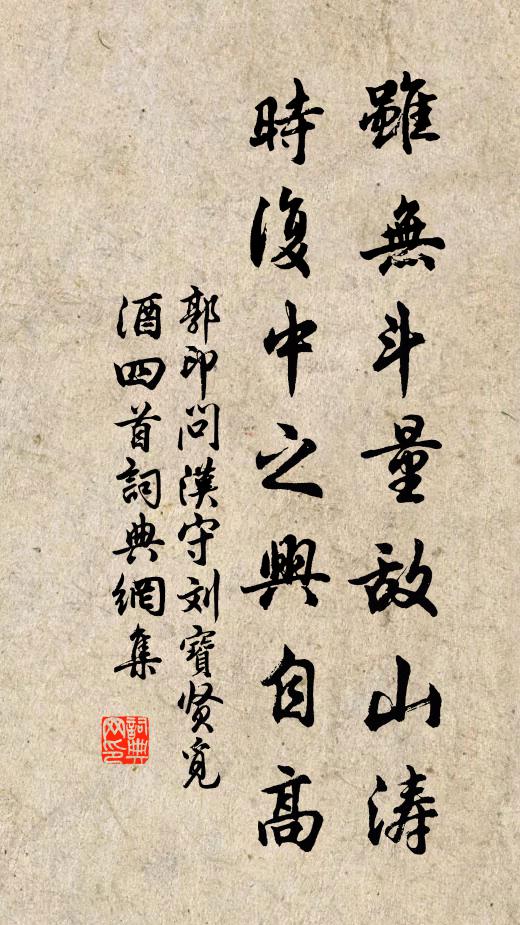 雖無斗量敌山涛
時復中之興自高
郭印問漢守刘寶贤覓
酒四首詞典網集
詞典网印